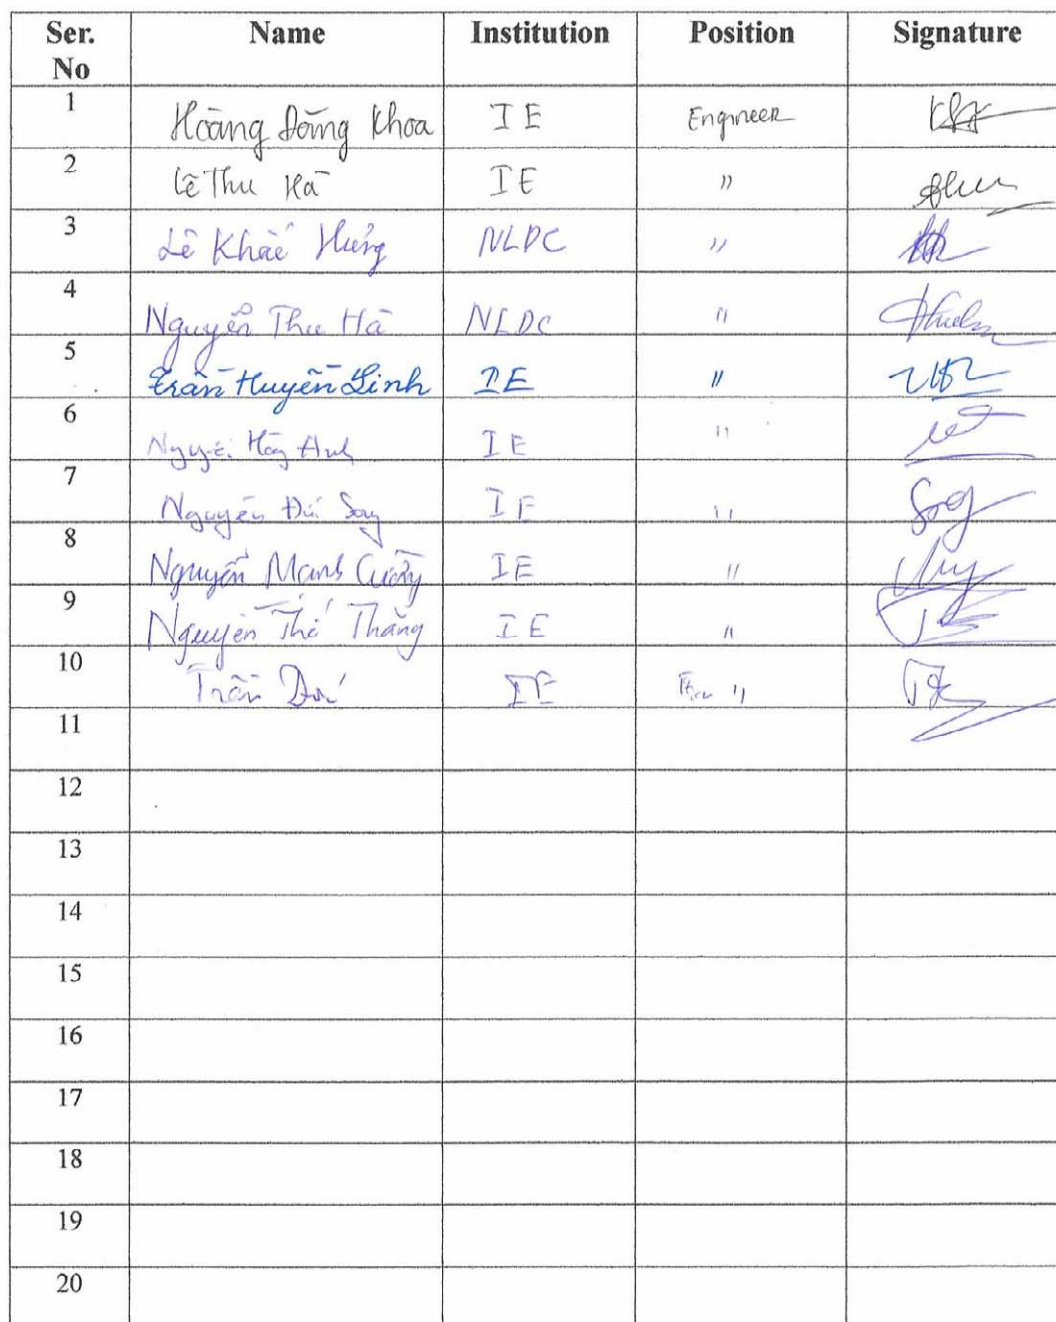 Ser. No Name Institution Position Signature
1 Hoàng Đăng Khoa IE Engineer
2 Lê Thu Hà IE "
3 Lê Khắc Hưng NLDC "
4 Nguyễn Thu Hà NLDC "
5 Trần Huyền Linh IE "
6 Nguyễn Anh IE "
7 Nguyễn IE "
8 Nguyễn Mạnh Cường IE "
9 Nguyễn Thế Thắng IE "
10 Trần IE "
11
12
13
14
15
16
17
18
19
20